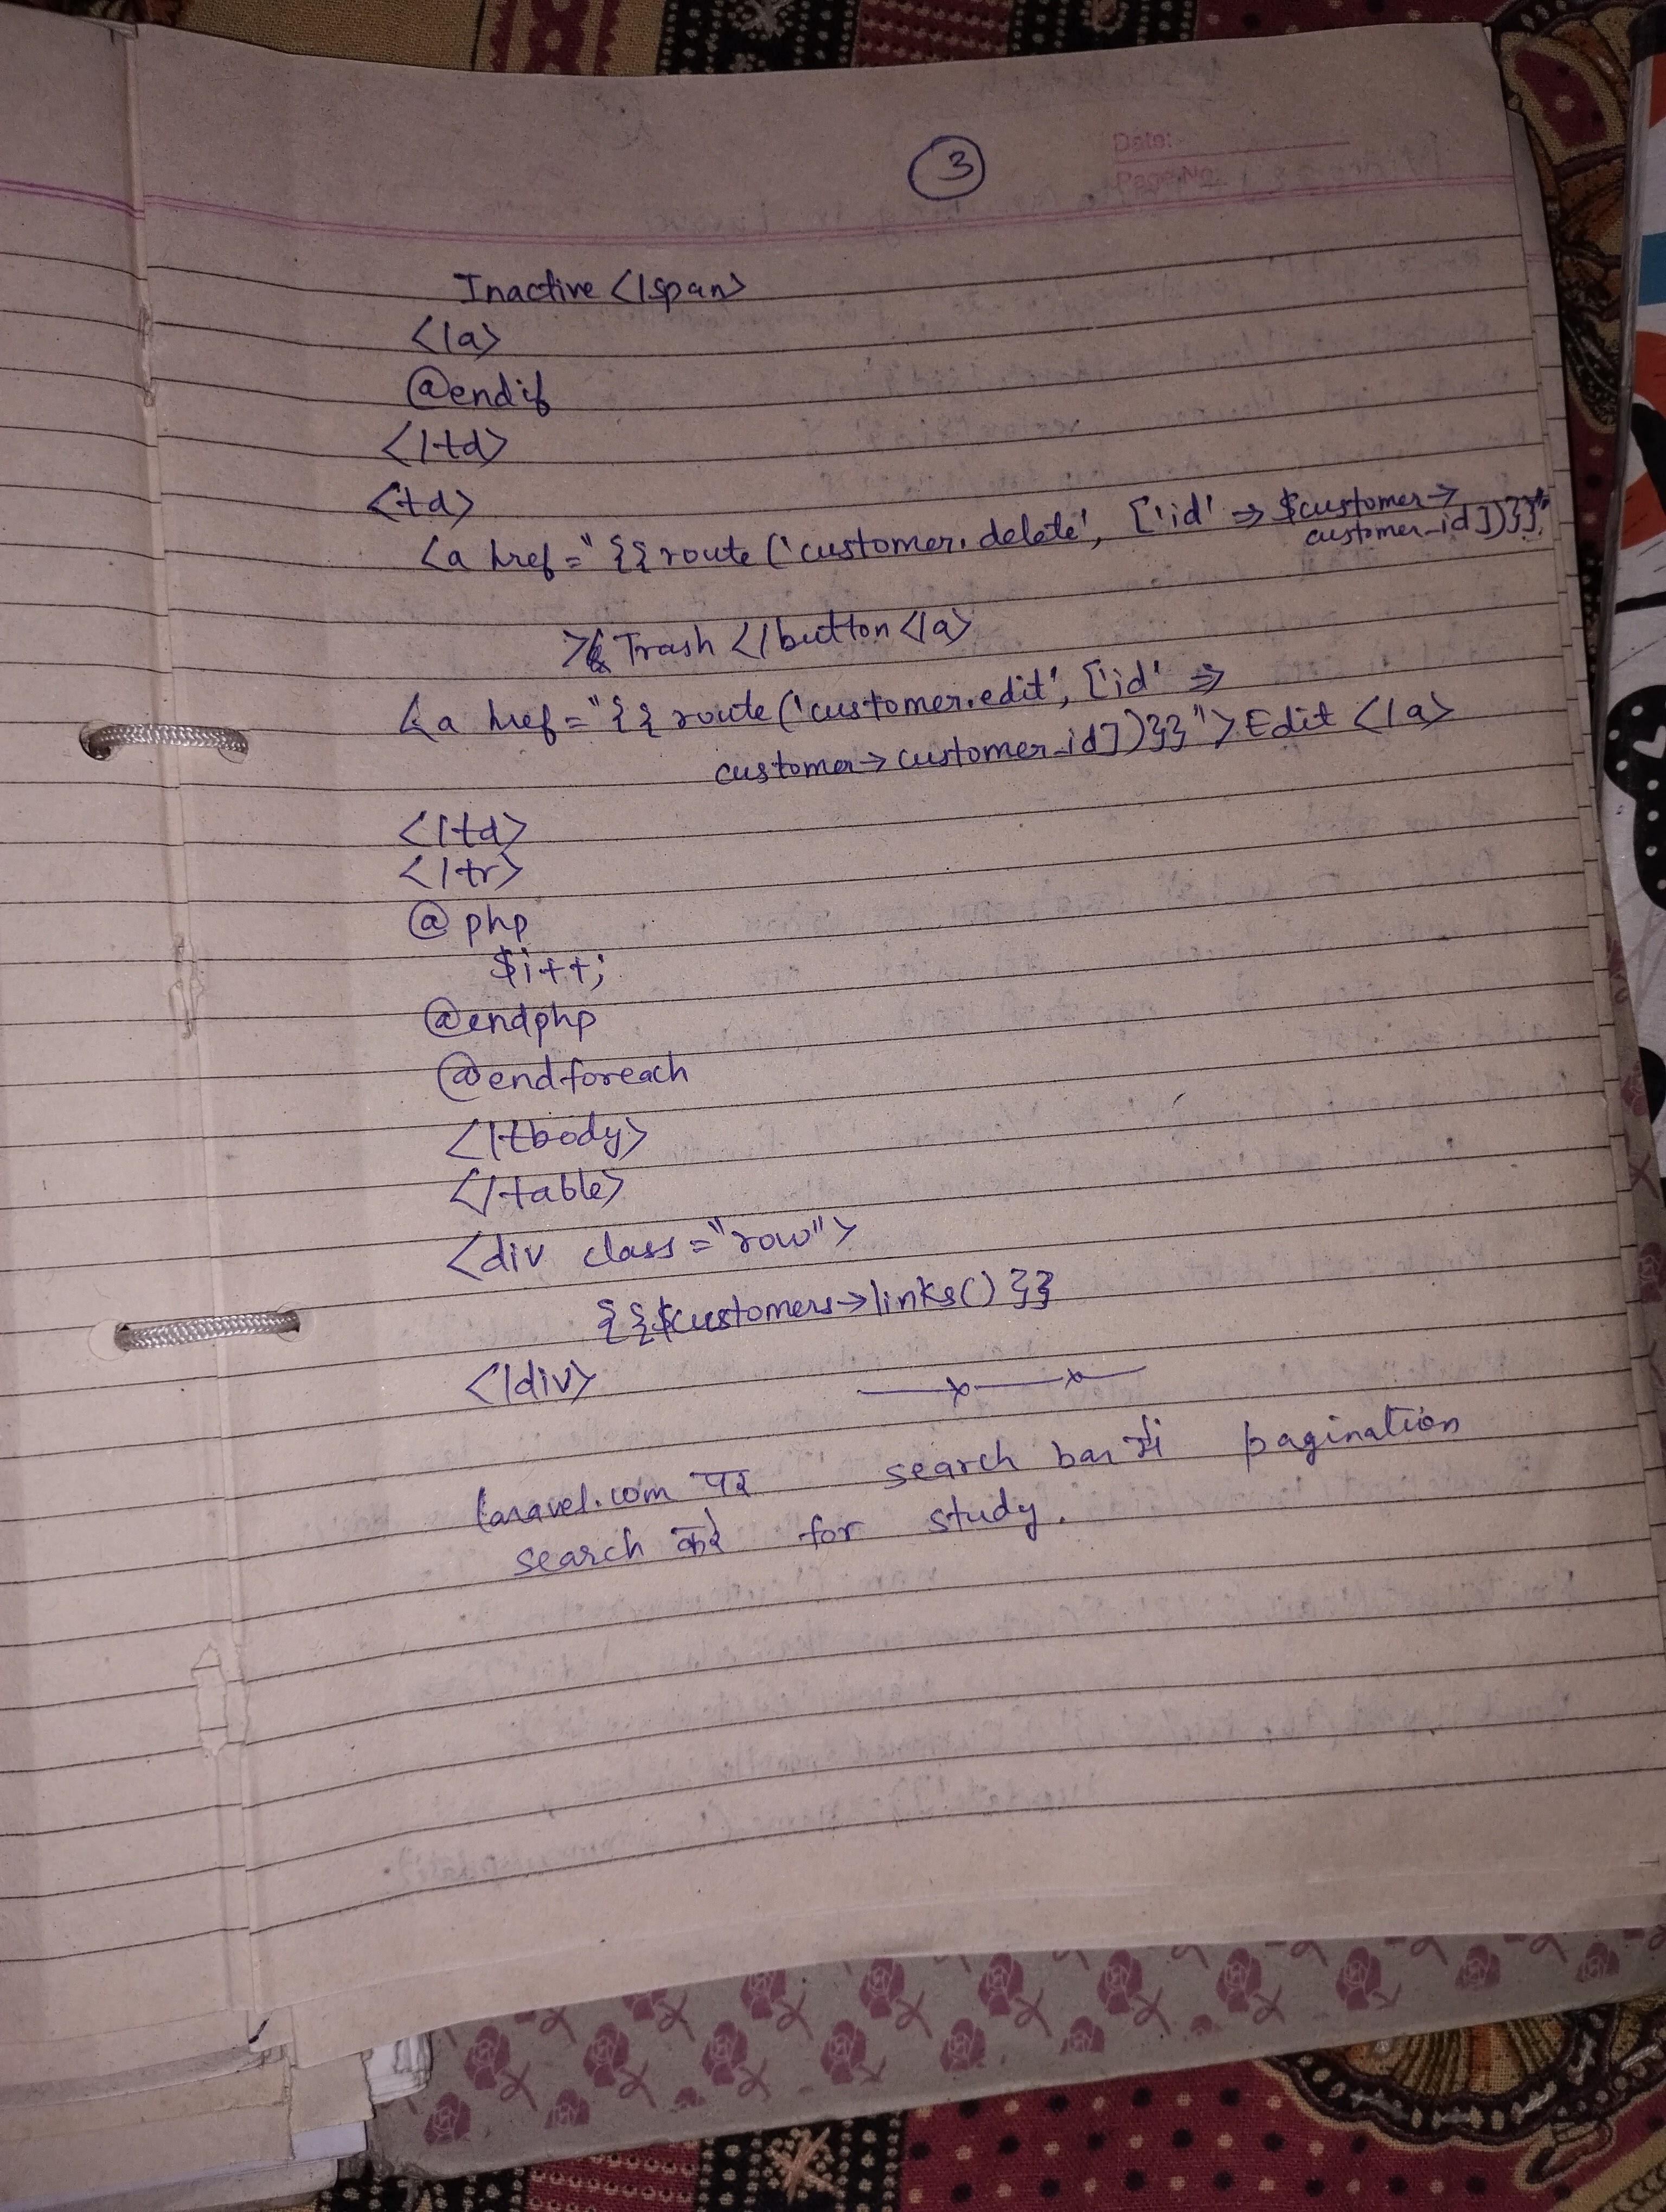 3
Date:
Page No.
Inactive </span>
</a>
@endif
</td>
<td>
<a href="{{route('customer.delete', ['id' => $customer->
customer_id])}}"
> Trash </button</a>
<a href="{{route('customer.edit', ['id' =>
customer->customer_id])}}">Edit </a>
</td>
</tr>
@php
$i++;
@endphp
@endforeach
</tbody>
</table>
<div class="row">
{{$customers->links()}}
</div>
laravel.com पर search bar में pagination
search करे for study.